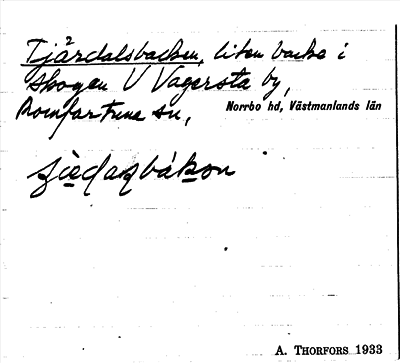 Tjärdalsbacken, liten backe i
skogen V Vagersta by,
Romfartuna sn, Norrbo hd, Västmanlands län
A. THORFORS 1933